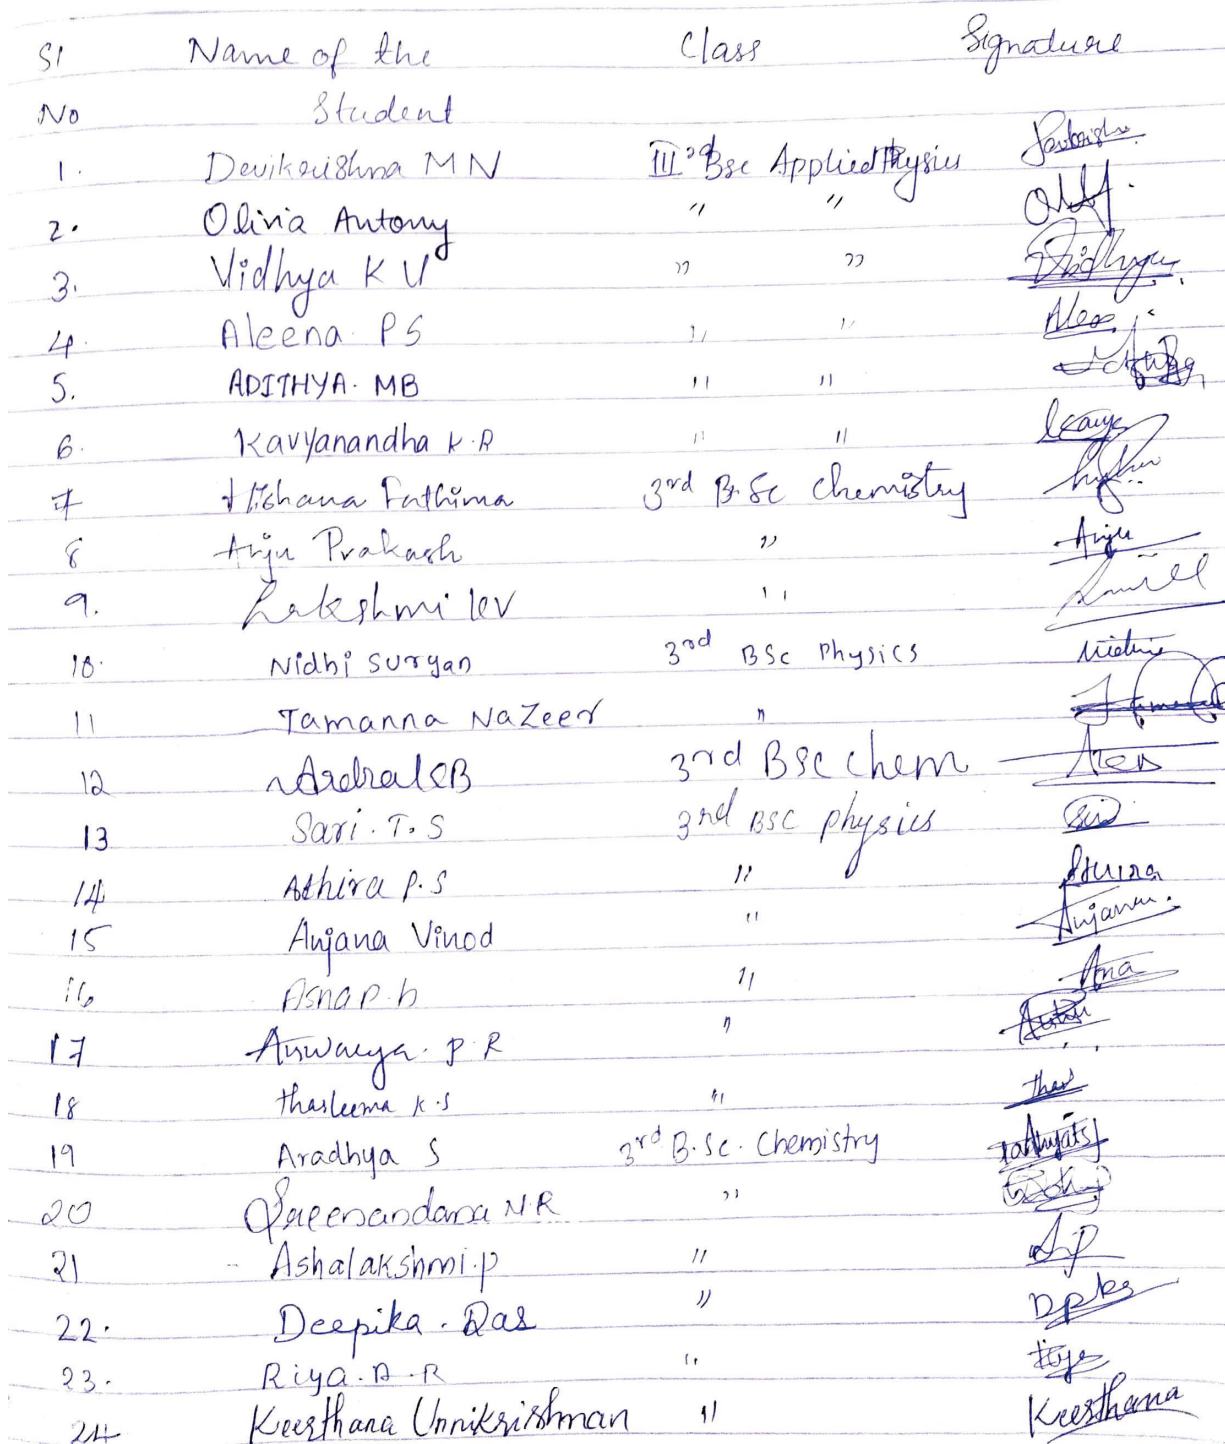 Sl Name of the Class Signature
No Student
1. Devikrishna MN IIIrd Bsc Applied Physics
2. Olivia Antony " "
3. Vidhya K V " " Vidhya
4. Aleena PS " "
5. ADITHYA. MB " "
6. Kavyanandha K.A " " Kavya
7 Hishana Fathima 3rd B.Sc Chemistry
8 Anju Prakash " Anju
9. Lakshmi KV "
10. Nidhi suryan 3rd BSc Physics
11 Tamanna Nazeer "
12 Ardra KB 3rd BSc chem
13 Sari. T. S 3rd BSC physics
14 Athira P. S " Athira
15 Anjana Vinod " Anjana.
16 Asna P. h " Asna
17 Aiswarya. P R "
18 thasleema K.S "
19 Aradhya S 3rd B.Sc. Chemistry
20 Sreenandana N.R "
21 Ashalakshmi.P "
22. Deepika. Das "
23. Riya. A. R " Riya
24 Keerthana Unnikrishnan " Keerthana